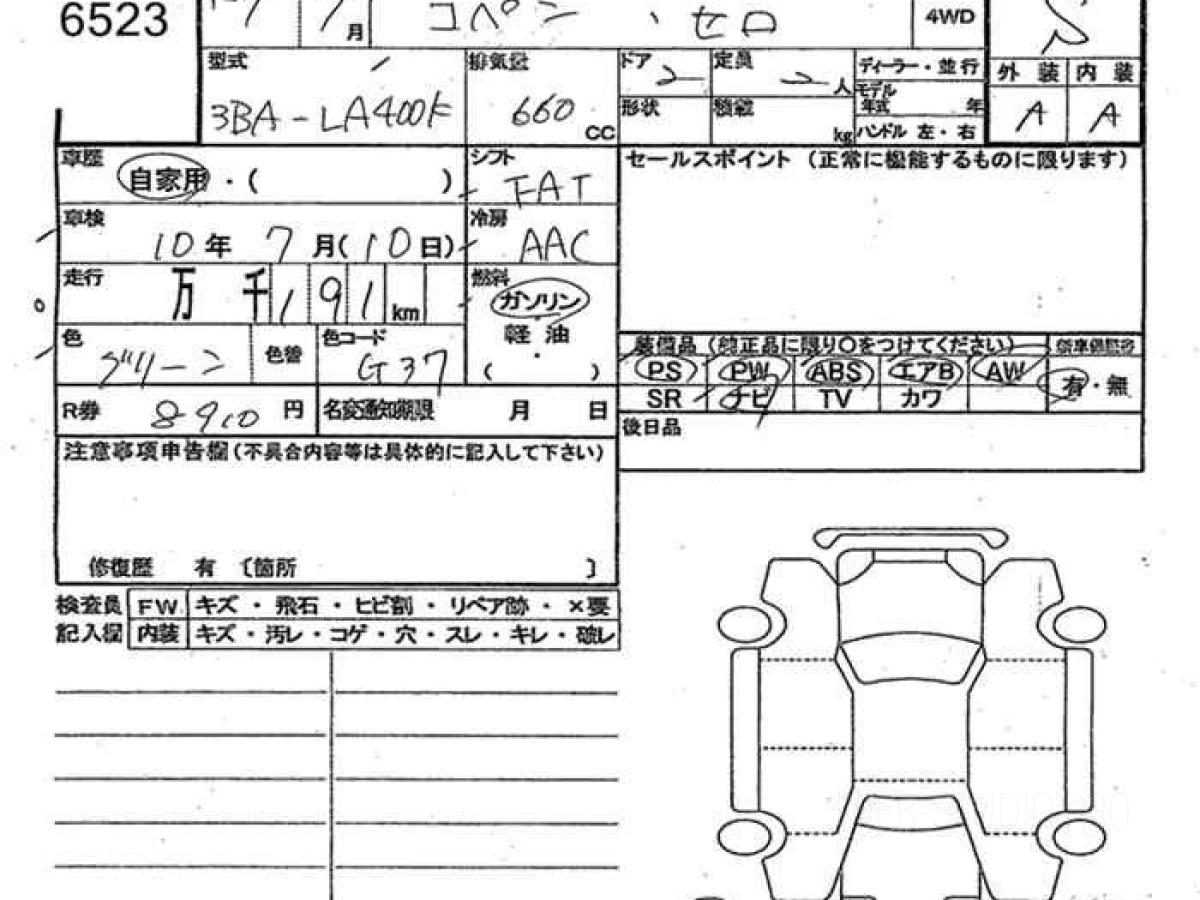 6523
7月 コペン セロ 4WD S
型式 排気量 ドア 2 定員 2人 ディーラー・並行 外装 内装
3BA-LA400K 660 cc 形状 積載 kg モデル年式 年 A A
ハンドル 左・右
車歴 自家用・( ) シフト FAT セールスポイント (正常に機能するものに限ります)
車検 10年 7月(10日) 冷房 AAC
走行 万 千 191 km 燃料 ガソリン
軽油
( )
色 グリーン 色替 色コード G37
装備品 (純正品に限り○をつけてください) 新車保証書
PS PW ABS エアB AW 有・無
SR ナビ TV カワ
R券 8910 円 名変通知期限 月 日
後日品
注意事項申告欄(不具合内容等は具体的に記入して下さい)
修復歴 有 〔箇所 〕
検査員 FW キズ・飛石・ヒビ割・リペア跡・×要
記入欄 内装 キズ・汚レ・コゲ・穴・スレ・キレ・破レ